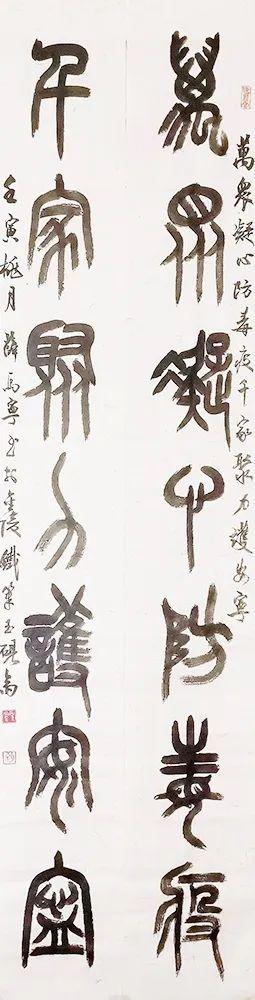 萬眾凝心防毒疫千家聚力護安寧
萬眾凝心防毒疫
千家聚力護安寧
壬寅桃月薛馬寧書於金陵鐵筆玉硯齋